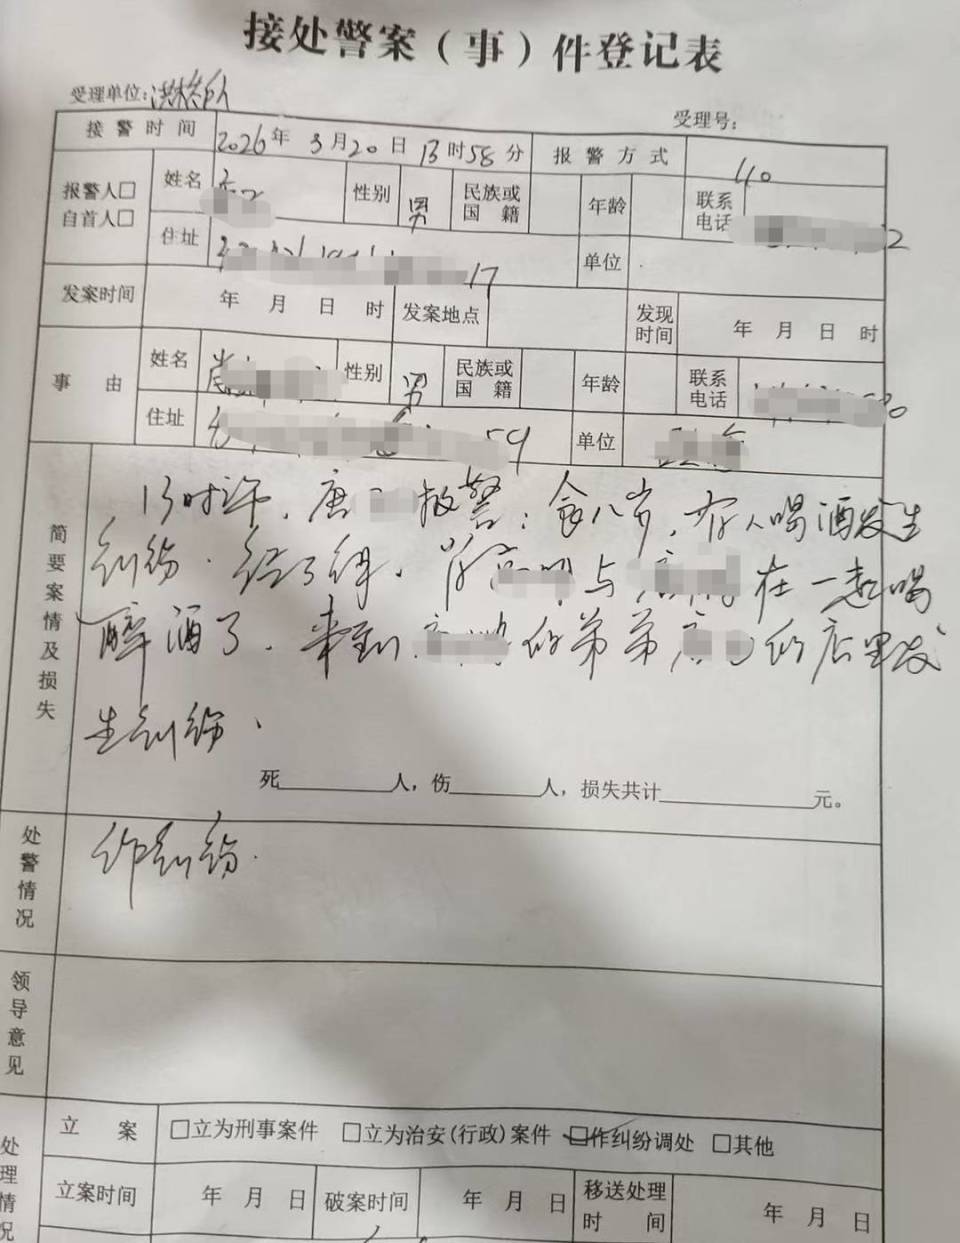 接处警案（事）件登记表
受理单位: 洪桥所 受理号:
接警时间 2026年 3月20日 13时58分 报警方式 110
报警人□ 自首人□ 姓名 性别 男 民族或国籍 年龄 联系电话 2
住址 17 单位
发案时间 年 月 日 时 发案地点 发现时间 年 月 日 时
事由 姓名 性别 男 民族或国籍 年龄 联系电话
住址 59 单位
简要案情及损失
13时许，唐 报警：食八岁，有人喝酒发生
纠纷。经了解， 与 在一起喝
醉酒了，来到 的弟弟 的店里发
生纠纷。
死 人，伤 人，损失共计 元。
处警情况 作纠纷.
领导意见
处理情况
立案 □立为刑事案件 □立为治安(行政)案件 ☑作纠纷调处 □其他
立案时间 年 月 日 破案时间 年 月 日 移送处理时间 年 月 日